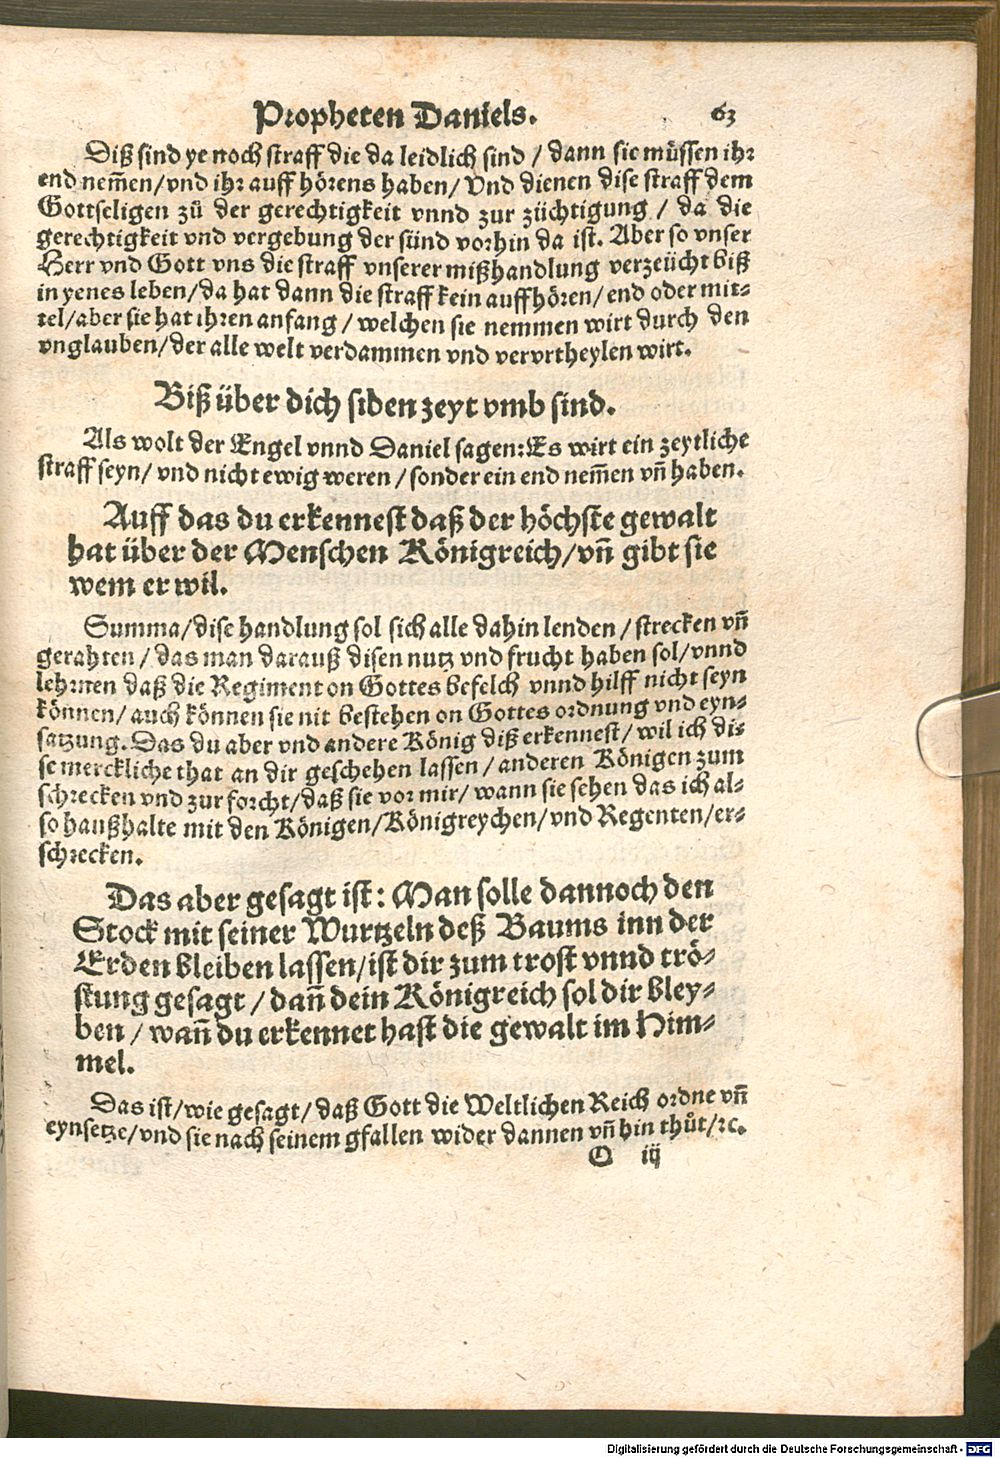 Propheten Daniels. 63
Diß sind ye noch straff die da leidlich sind / dann sie müssen ihr
end nem̃en/vnd ihr auff hörens haben/ Vnd dienen dise straff dem
Gottseligen zů der gerechtigkeit vnnd zur züchtigung / da die
gerechtigkeit vnd vergebung der sünd vorhin da ist. Aber so vnser
Herr vnd Gott vns die straff vnserer mißhandlung verzeücht biß
in yenes leben/da hat dann die straff kein auffhören/ end oder mit-
tel/aber sie hat ihren anfang / welchen sie nemmen wirt durch den
vnglauben/der alle welt verdammen vnd vervrtheylen wirt.
Biß über dich siben zeyt vmb sind.
Als wolt der Engel vnnd Daniel sagen: Es wirt ein zeytliche
straff seyn/ vnd nicht ewig weren / sonder ein end nem̃en vñ haben.
Auff das du erkennest daß der höchste gewalt
hat über der Menschen Königreich/vñ gibt sie
wem er wil.
Summa/dise handlung sol sich alle dahin lenden / strecken vñ
gerahten / das man darauß disen nutz vnd frucht haben sol/vnnd
lehrnen daß die Regiment on Gottes befelch vnnd hilff nicht seyn
können/ auch können sie nit bestehen on Gottes ordnung vnd eyn-
satzung. Das du aber vnd andere König diß erkennest/ wil ich di-
se merckliche that an dir geschehen lassen / anderen Königen zum
schrecken vnd zur forcht/daß sie vor mir/ wann sie sehen das ich al-
so haußhalte mit den Königen/Königreychen/vnd Regenten/er-
schrecken.
Das aber gesagt ist: Man solle dannoch den
Stock mit seiner Wurtzeln deß Baums inn der
Erden bleiben lassen/ist dir zum trost vnnd trö-
stung gesagt / dañ dein Königreich sol dir bley-
ben / wañ du erkennet hast die gewalt im Him-
mel.
Das ist/wie gesagt/daß Gott die Weltlichen Reich ordne vñ
eynsetze/vnd sie nach seinem gfallen wider dannen vñ hin thůt/ꝛc.
O iij
Digitalisierung gefördert durch die Deutsche Forschungsgemeinschaft - DFG